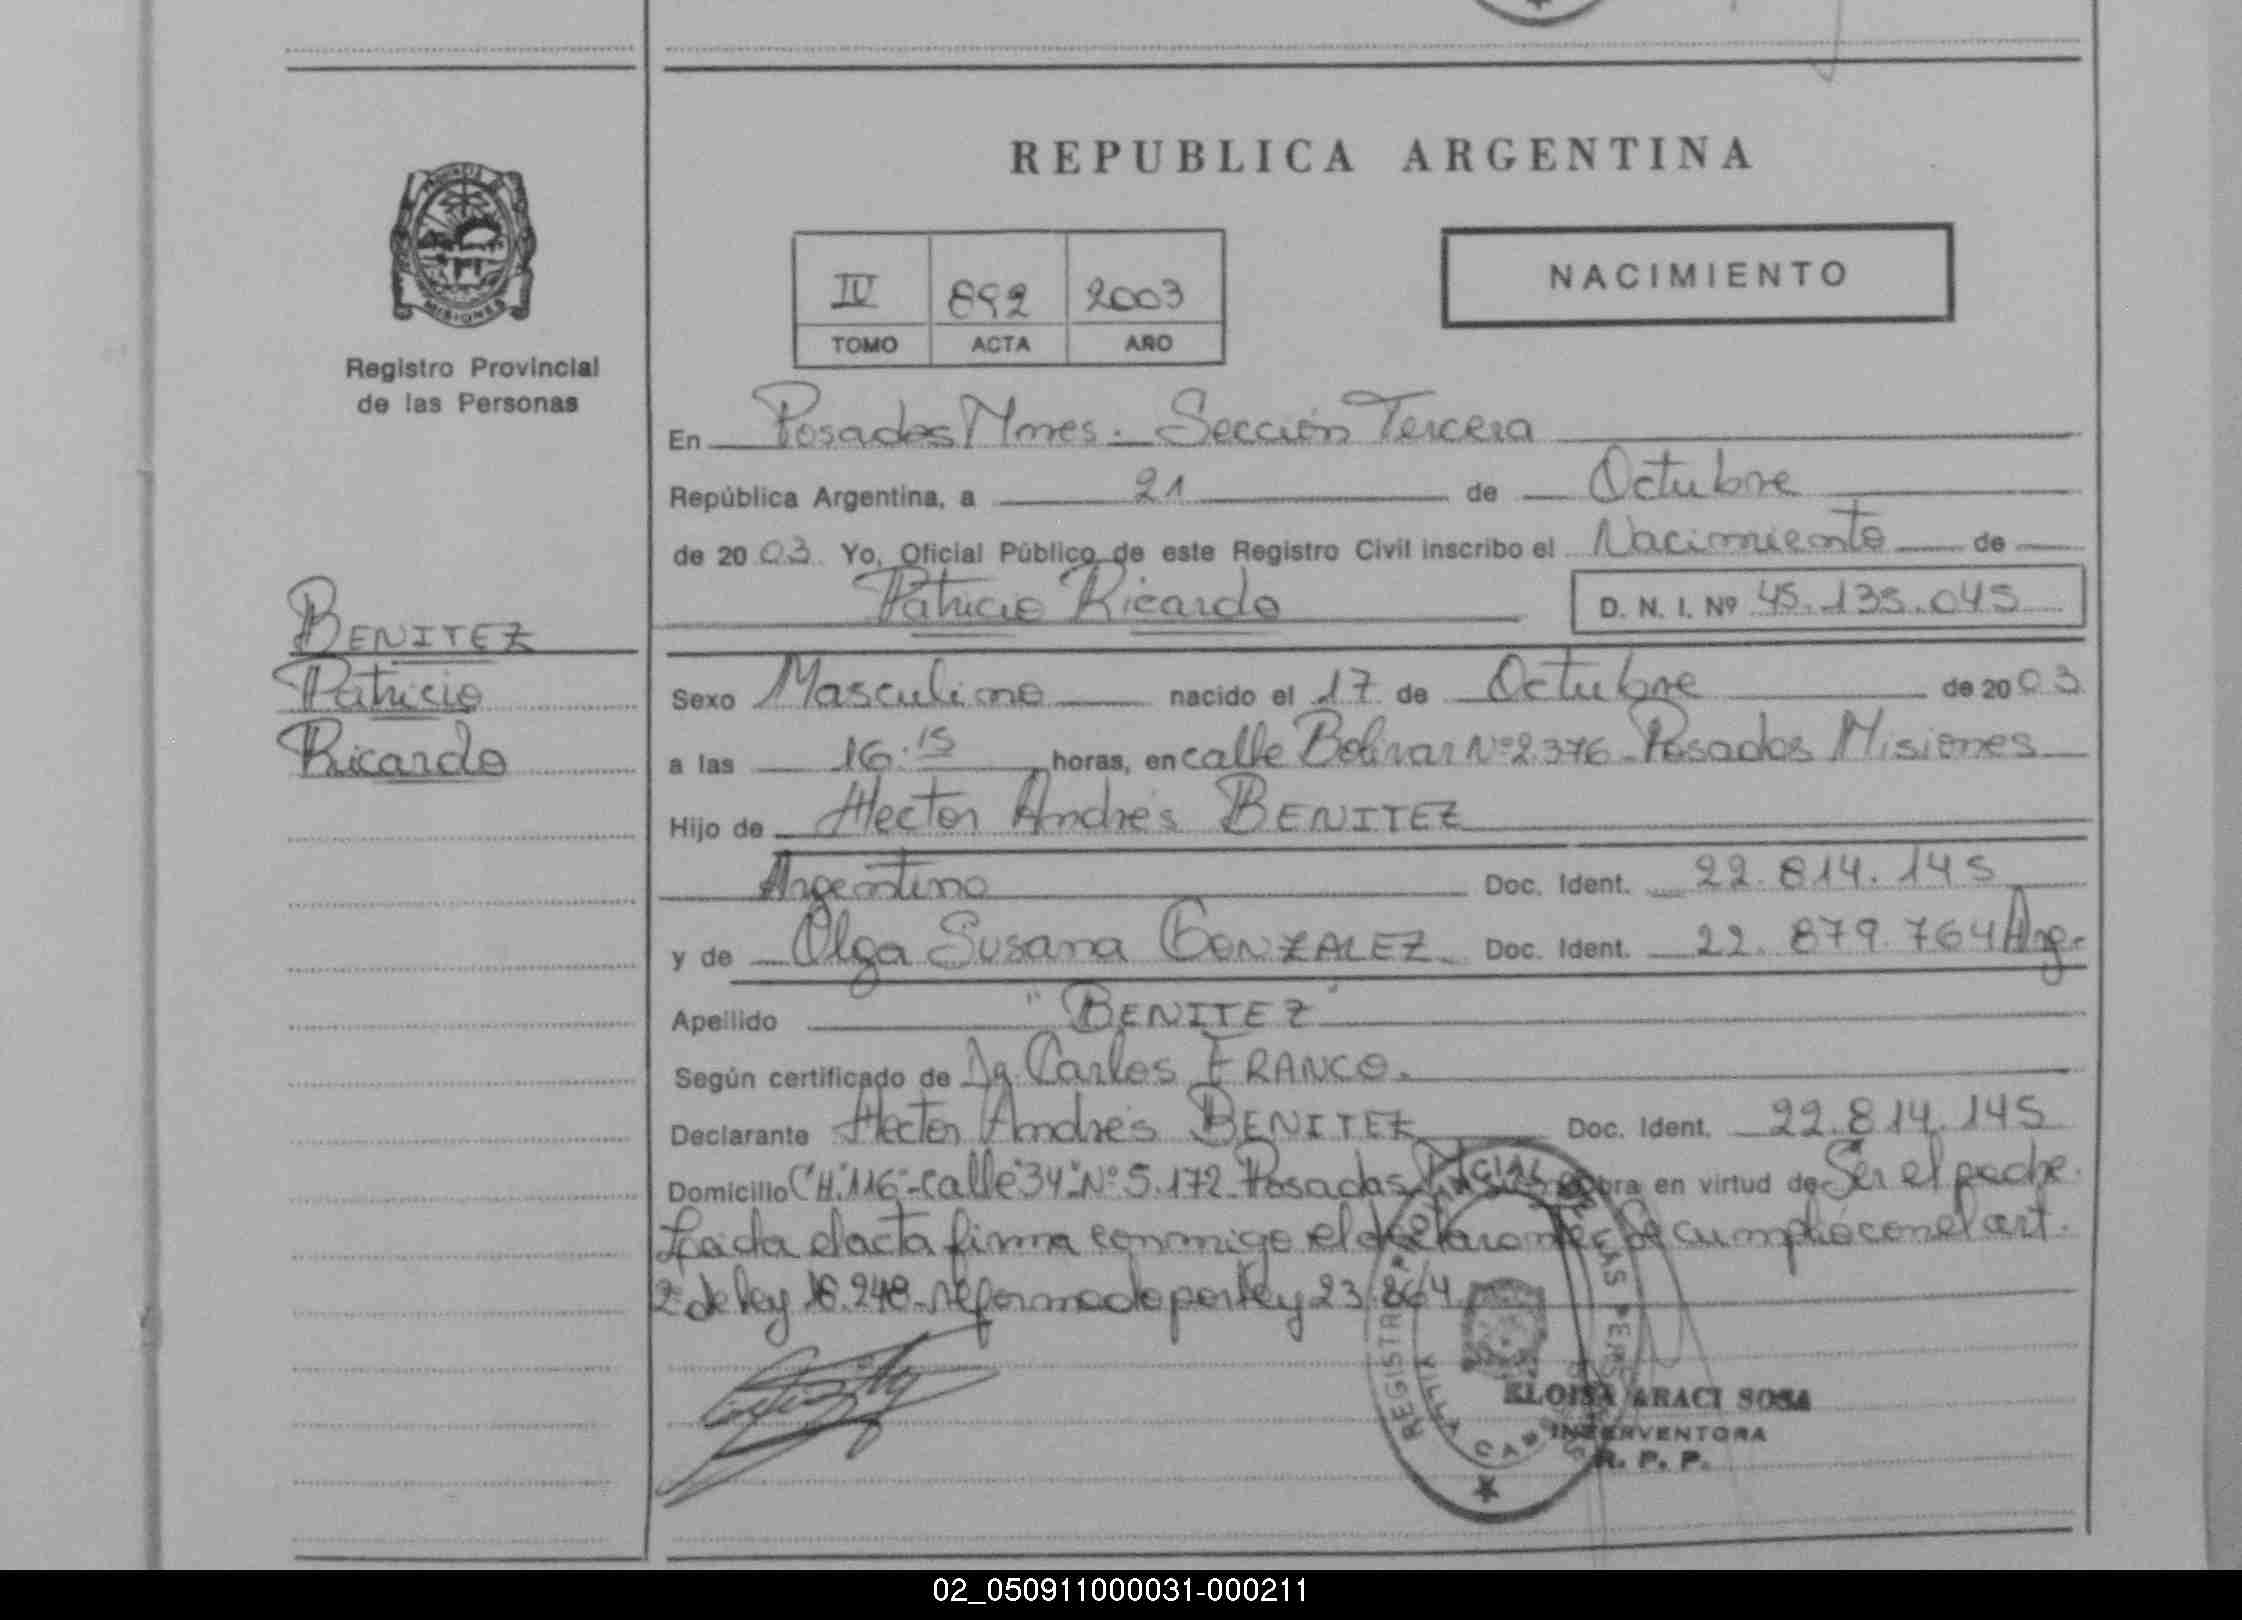 REPUBLICA ARGENTINA
NACIMIENTO
IV 892 2003
TOMO ACTA AÑO
Registro Provincial
de las Personas
En Posadas Mnes. Sección Tercera
República Argentina, a 21 de Octubre
de 2003. Yo, Oficial Público de este Registro Civil inscribo el Nacimiento de
Patricio Ricardo D. N. I. Nº 45.135.045
BENITEZ
Patricio
Ricardo
Sexo Masculino nacido el 17 de Octubre de 2003
a las 16.15 horas, en calle Bolivar Nº 2.376 - Posadas Misiones
Hijo de Hector Andrés BENITEZ
Argentino Doc. Ident. 22.814.145
y de Olga Susana GONZALEZ Doc. Ident. 22.879.764 Arg.
Apellido "BENITEZ"
Según certificado de Carlos FRANCO.
Declarante Hector Andrés BENITEZ Doc. Ident. 22.814.145
Domicilio CH "116" - calle "34" Nº 5.172 Posadas obra en virtud de Ser el padre.
Leída el acta firma conmigo el declarante Se cumplió con el art.
2º de ley 18.248 - reformado por ley 23.264
REGISTRO PROVINCIAL DE LAS PERSONAS
ELOISA ARACI SOSA
INTERVENTORA
R. P. P.
02_050911000031-000211